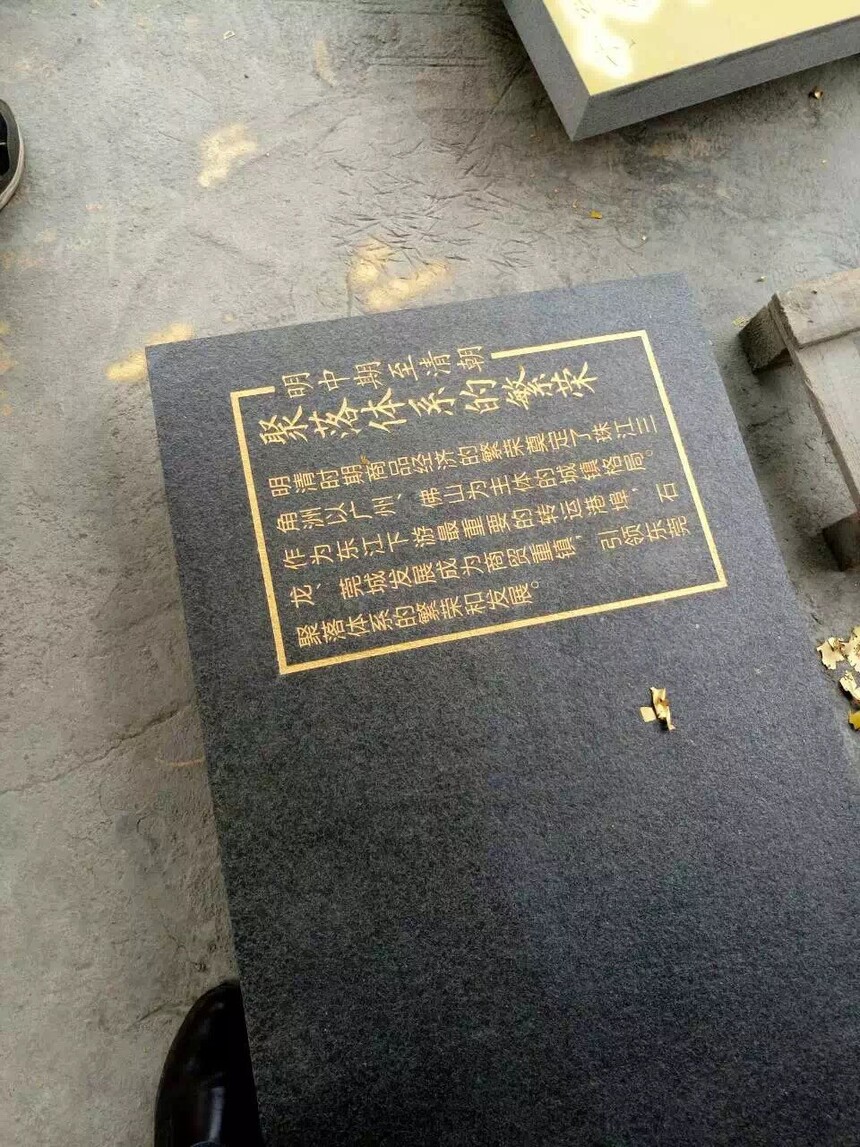 明中期至清朝
聚落体系的繁荣
明清时期商品经济的繁荣奠定了珠江三
角洲以广州、佛山为主体的城镇格局。
作为东江下游最重要的转运港埠，石
龙、莞城发展成为商贸重镇，引领东莞
聚落体系的繁荣和发展。